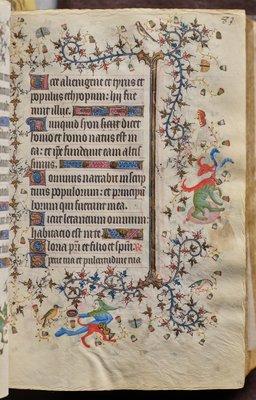 87
Ecce alienigene et tyrus et
populus ethyopum: hii fue
runt illuc.
Nunquid syon dicet
homo et homo natus est in
ea: et ipse fundauit eam altis
simus.
Dominus narrabit in scrip
populorum: et principum
horum qui fuerunt in ea.
Sicut letancium omnium
habitacio est in te.
Gloria pri et filio et spui
pecie tua et pulcritudine tua